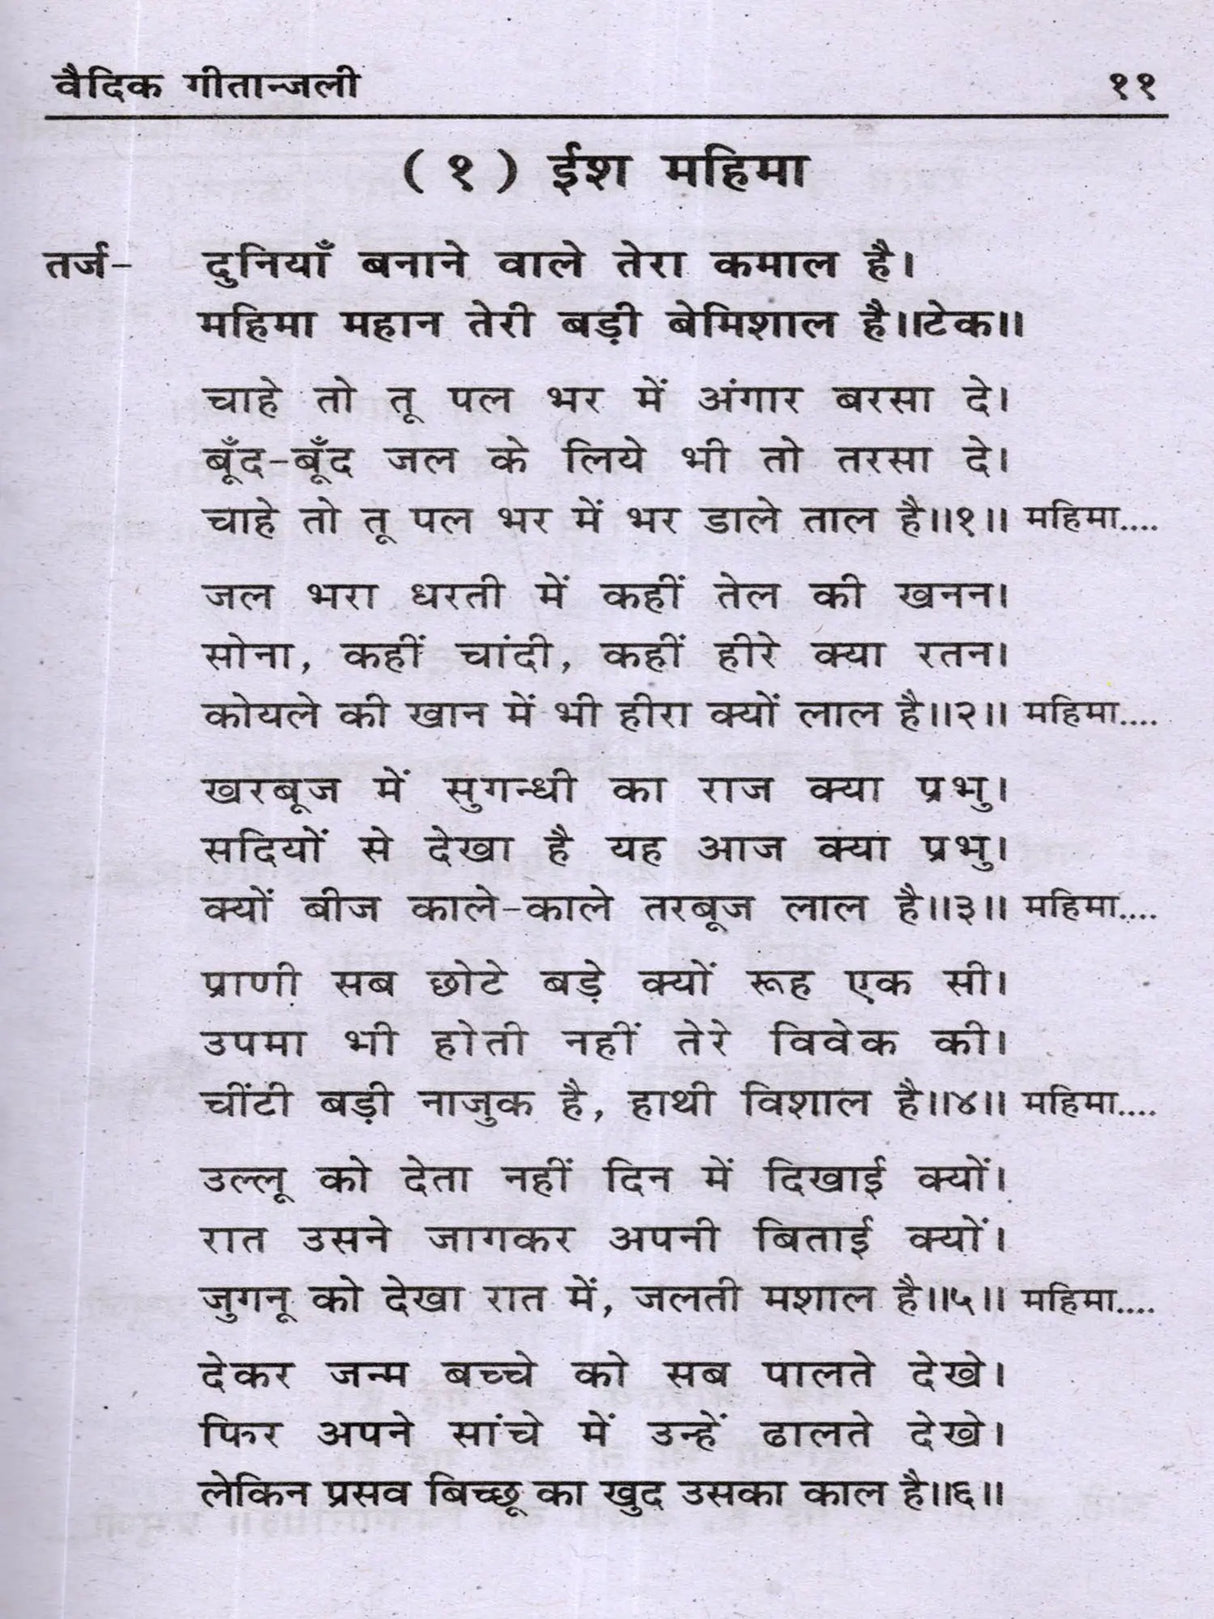 वैदिक गीतान्जली ११
( १ ) ईश महिमा
तर्ज- दुनियाँ बनाने वाले तेरा कमाल है।
महिमा महान तेरी बड़ी बेमिशाल है॥टेक॥
चाहे तो तू पल भर में अंगार बरसा दे।
बूँद-बूँद जल के लिये भी तो तरसा दे।
चाहे तो तू पल भर में भर डाले ताल है॥१॥ महिमा....
जल भरा धरती में कहीं तेल की खनन।
सोना, कहीं चांदी, कहीं हीरे क्या रतन।
कोयले की खान में भी हीरा क्यों लाल है॥२॥ महिमा....
खरबूज में सुगन्धी का राज क्या प्रभु।
सदियों से देखा है यह आज क्या प्रभु।
क्यों बीज काले-काले तरबूज लाल है॥३॥ महिमा....
प्राणी सब छोटे बड़े क्यों रूह एक सी।
उपमा भी होती नहीं तेरे विवेक की।
चींटी बड़ी नाजुक है, हाथी विशाल है॥४॥ महिमा....
उल्लू को देता नहीं दिन में दिखाई क्यों।
रात उसने जागकर अपनी बिताई क्यों।
जुगनू को देखा रात में, जलती मशाल है॥५॥ महिमा....
देकर जन्म बच्चे को सब पालते देखे।
फिर अपने सांचे में उन्हें ढालते देखे।
लेकिन प्रसव बिच्छू का खुद उसका काल है॥६॥